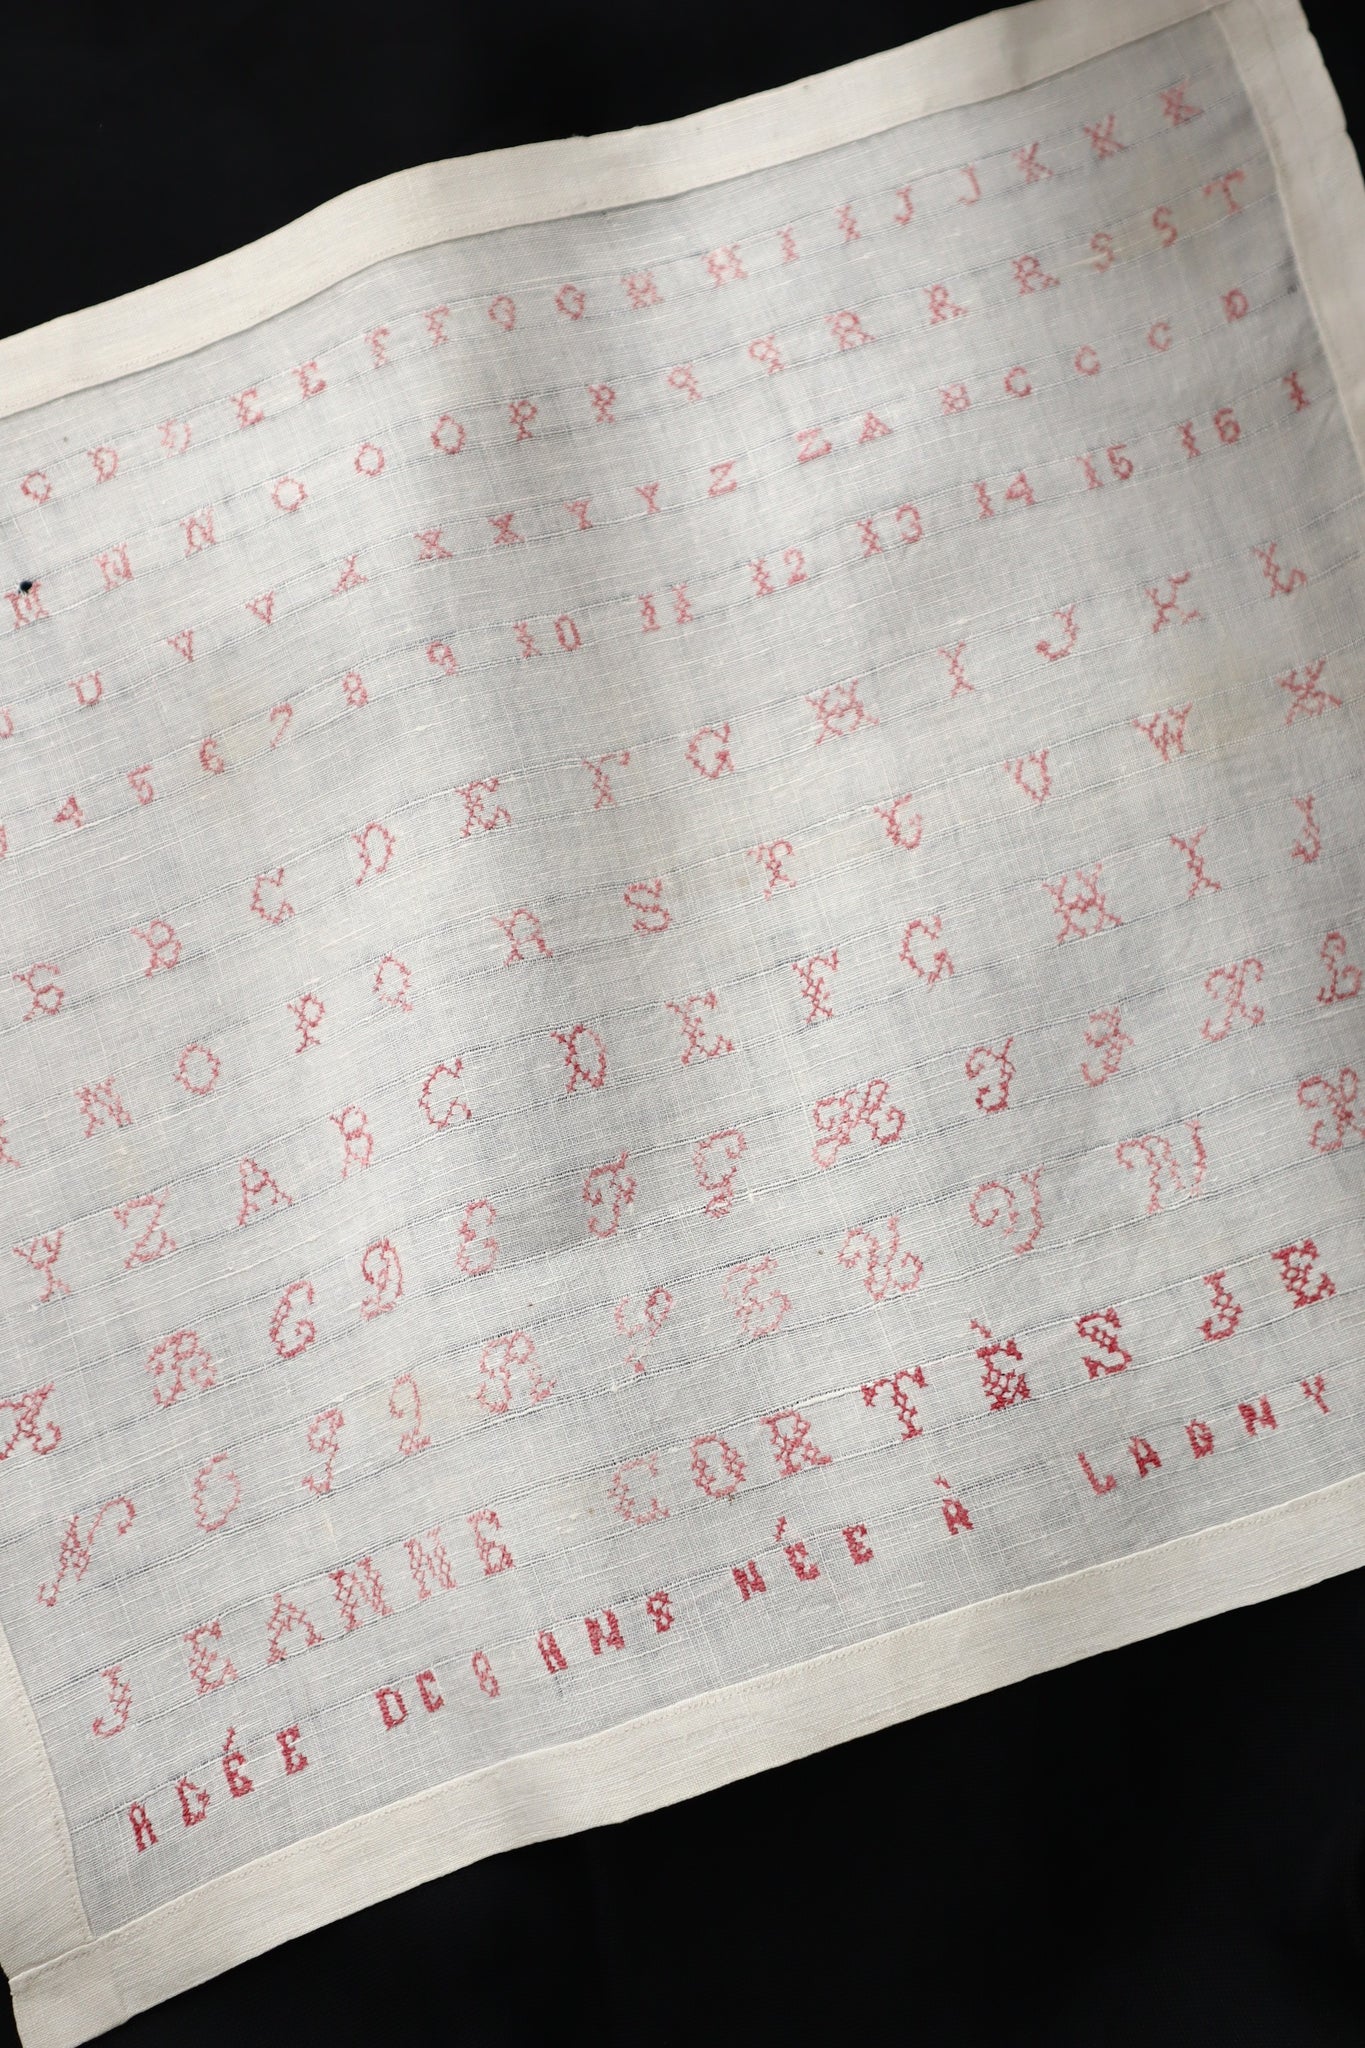 C D D E E F F G G H H I I J J K K K
M N N O O O P P Q Q R R R S S T
U U V V X X Y Y Z Z A B C C C D
4 5 6 7 8 9 10 11 12 13 14 15 16 1
B C D E F G H I J K L
N O P Q R S T U V W X
Y Z A B C D E F G H I J
A B C D E F G H I J K L
N O P Q R S T U V W X
JEANNE CORTÈS JE
AGÉE DE 8 ANS NÉE À LAGNY